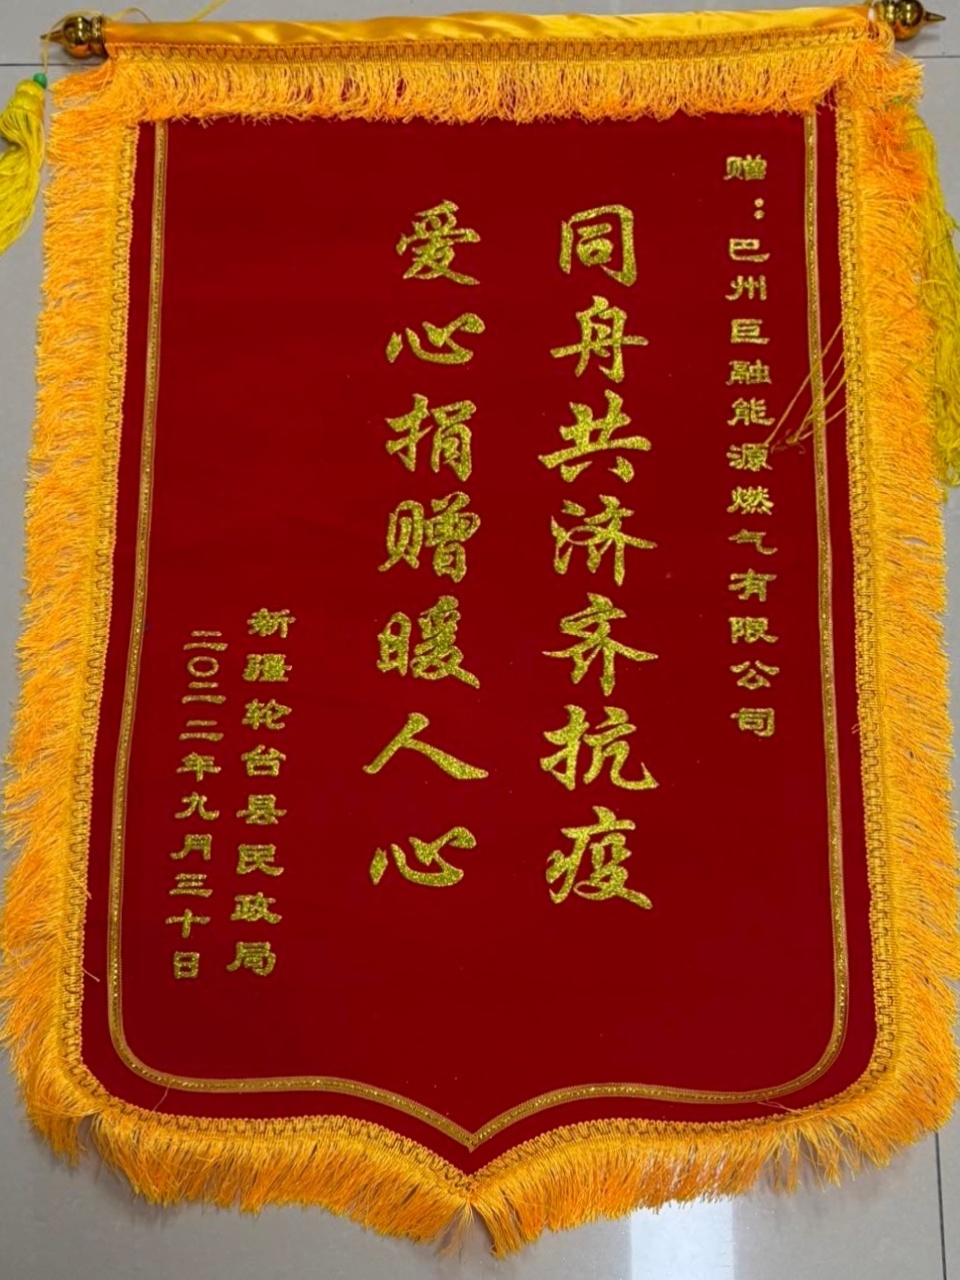 赠：巴州巨融能源燃气有限公司
同舟共济齐抗疫
爱心捐赠暖人心
新疆轮台县民政局
二〇二二年九月三十日